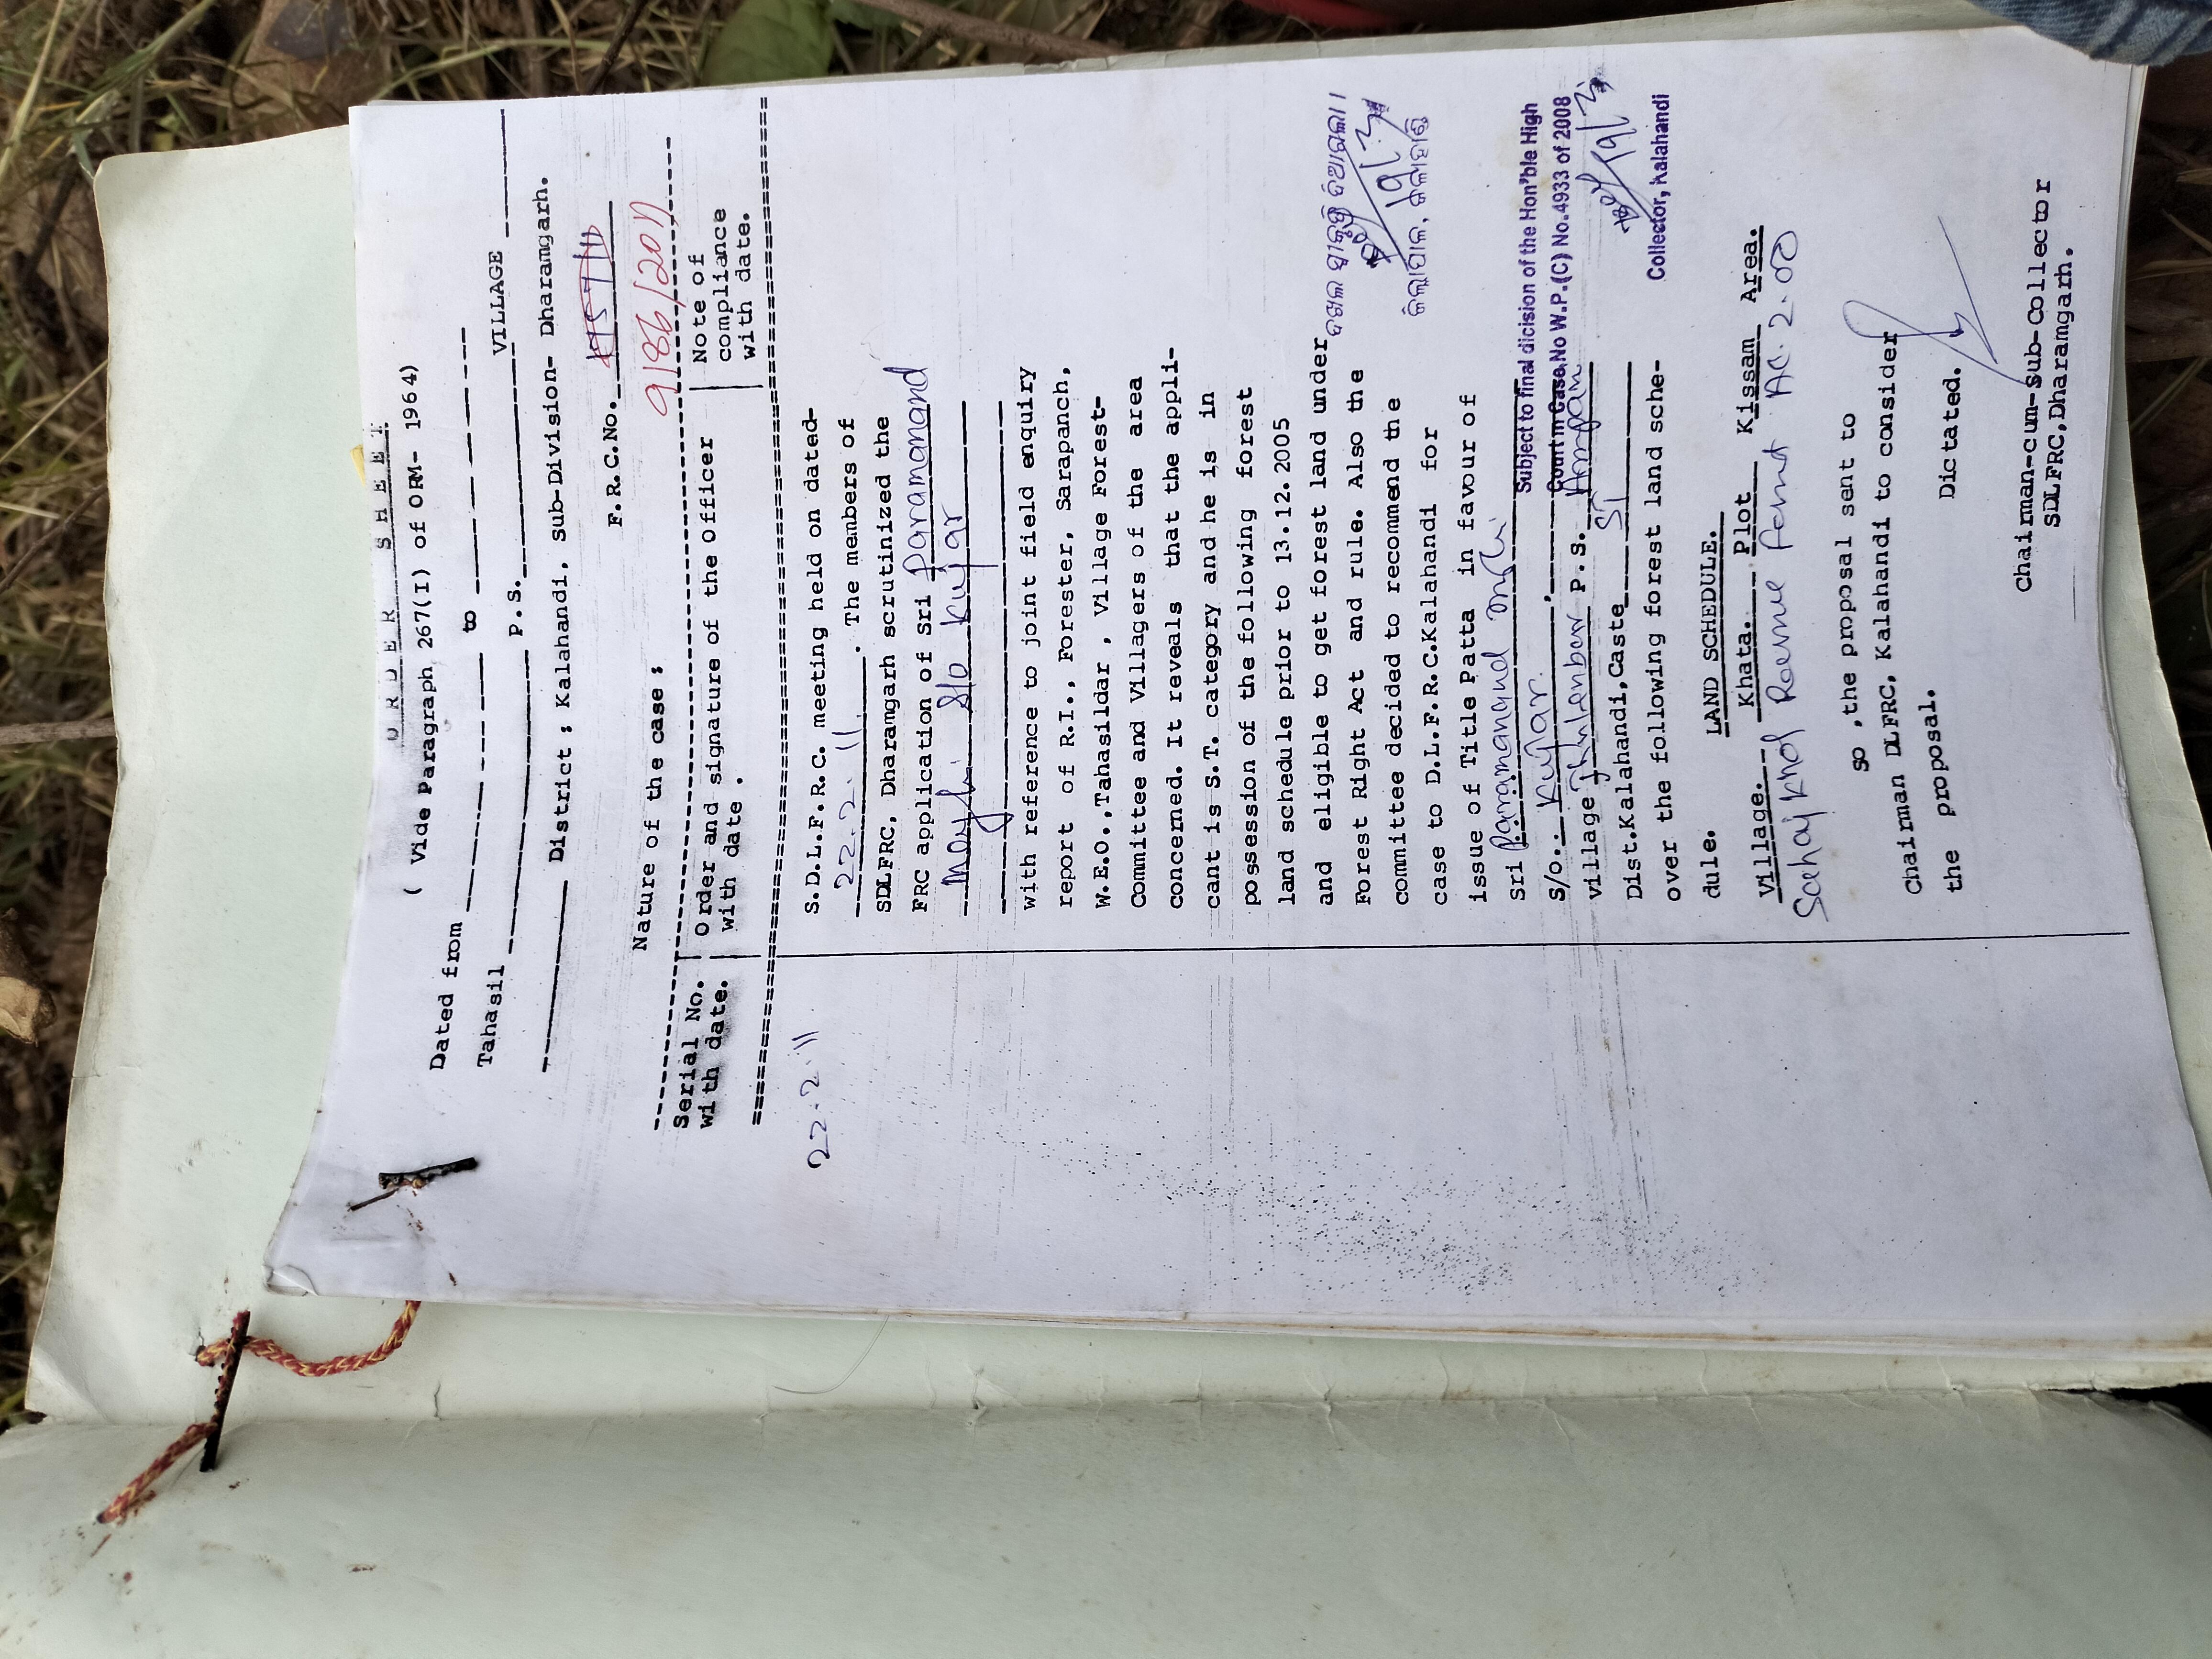 ORDER SHEET
( Vide Paragraph 267(I) of ORM- 1964)
Dated from ________ to ________
Tahasil ________ P.S. ________ VILLAGE ________
________ District ; Kalahandi, Sub-Division- Dharamgarh.
F.R.C.No.
9186/2011
Nature of the case ;
Serial No. with date.
Order and signature of the Officer with date .
Note of compliance with date.
22.2.11
S.D.L.F.R.C. meeting held on dated-
22.2.11. The members of
SDLFRC, Dharamgarh scrutinized the
FRC application of Sri Paramanand
Majhi S/o Kujar
with reference to joint field enquiry
report of R.I., Forester, Sarapanch,
W.E.O.,Tahasildar , Village Forest-
Committee and Villagers of the area
concerned. It reveals that the appli-
cant is S.T. category and he is in
possession of the following forest
land schedule prior to 13.12.2005
and eligible to get forest land under
Forest Right Act and rule. Also the
committee decided to recommend the
case to D.L.F.R.C.Kalahandi for
issue of Title Patta in favour of
Sri Paramanand Majhi
S/o.. Kujar
village P.S. Ampani
Dist.Kalahandi,Caste ST
over the following forest land sche-
dule.
ଜିଲ୍ଲାପାଳ, କଳାହାଣ୍ଡି
Subject to final dicision of the Hon'ble High
Court in Case No W.P.(C) No.4933 of 2008
Collector, Kalahandi
LAND SCHEDULE.
Village. Khata. Plot Kissam Area.
Sahajkhol Revenue Forest AC. 2.00
so ,the proposal sent to
Chairman DLFRC, Kalahandi to consider
the proposal.
Dictated.
Chairman-cum-Sub-Collector
SDLFRC,Dharamgarh.